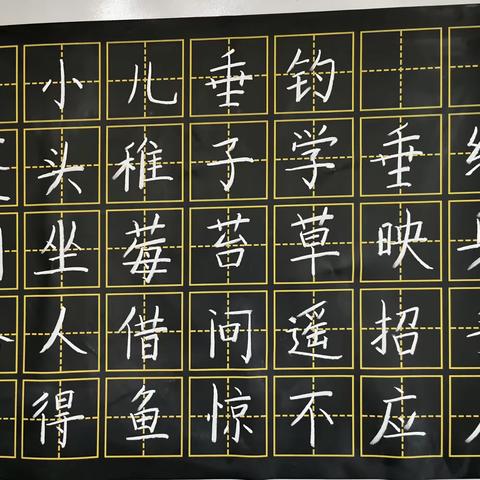 小儿垂钓
头稚子学垂
坐莓苔草映
人借问遥招
得鱼惊不应